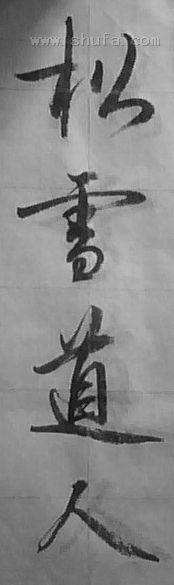 www.shufa.com
松雪道人